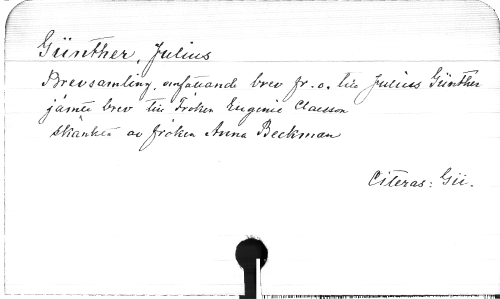 Günther, Julius
Brevsamling, omfattande brev fr. o. till Julius Günther
jämte brev till Fröken Eugenie Claeson
skänkta av fröken Anna Beckman
Citeras: Gü.